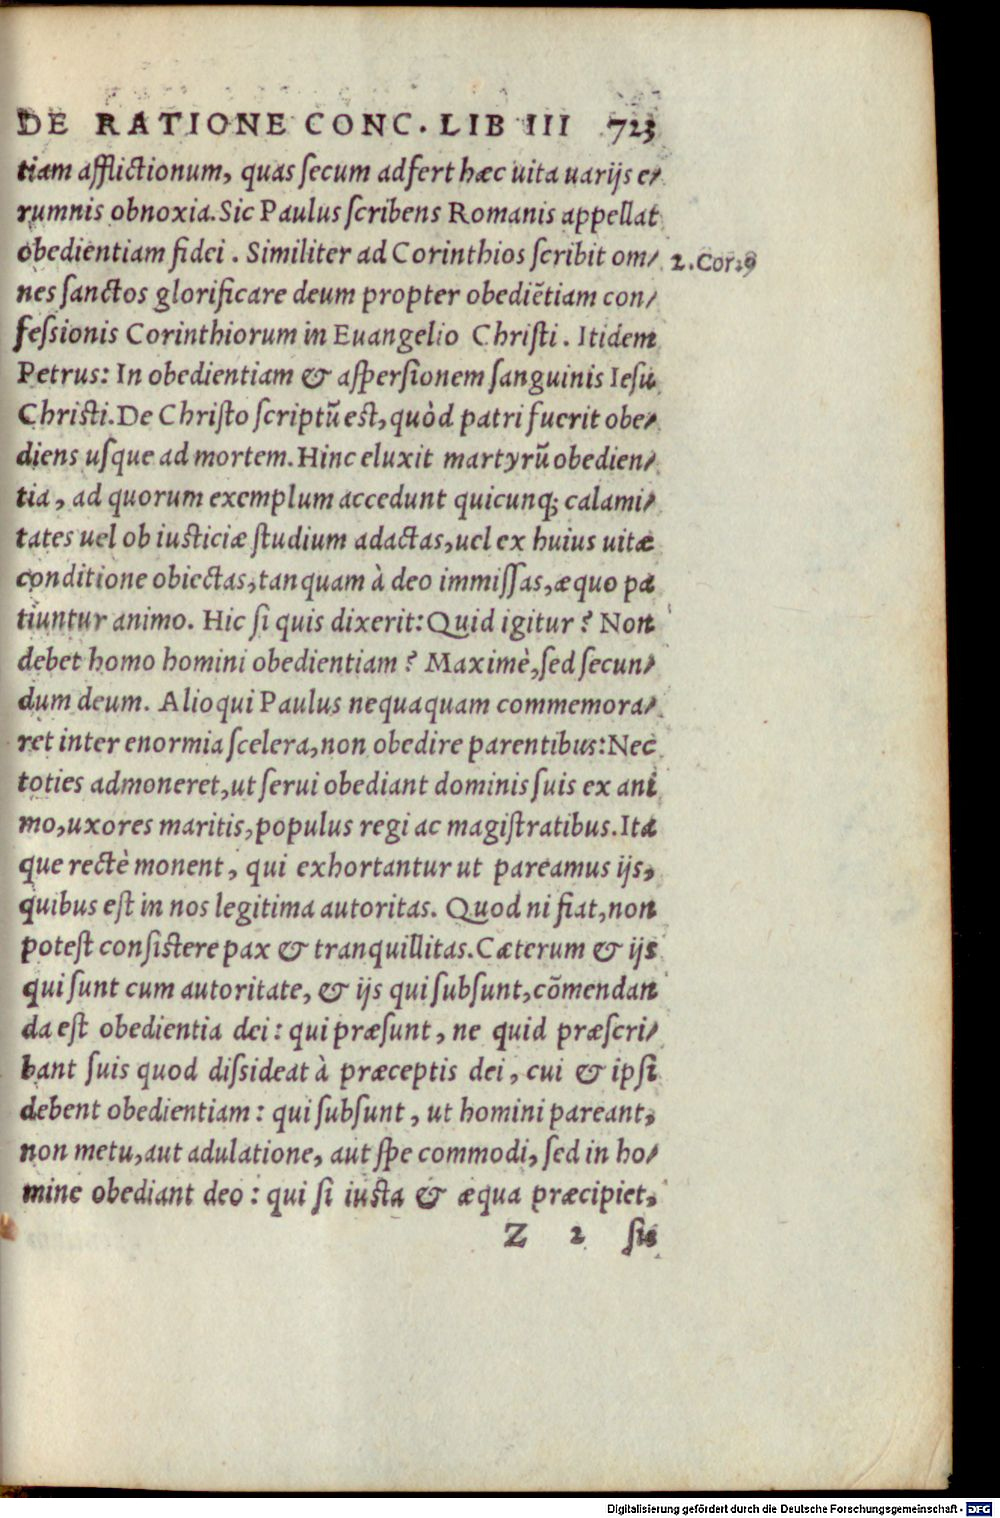 DE RATIONE CONC. LIB III 723
tiam afflictionum, quas ſecum adfert hæc uita uarijs e/
rumnis obnoxia. Sic Paulus ſcribens Romanis appellat
obedientiam fidei. Similiter ad Corinthios ſcribit om/
2. Cor. 9
nes ſanctos glorificare deum propter obediẽtiam con/
feſsionis Corinthiorum in Euangelio Chriſti. Itidem
Petrus: In obedientiam & aſperſionem ſanguinis Ieſu
Chriſti. De Chriſto ſcriptũ eſt, quòd patri fuerit obe/
diens uſque ad mortem. Hinc eluxit martyrũ obedien/
tia, ad quorum exemplum accedunt quicunq; calami/
tates uel ob iuſticiæ ſtudium adactas, uel ex huius uitæ
conditione obiectas, tanquam à deo immiſſas, æquo pa
tiuntur animo. Hic ſi quis dixerit: Quid igitur? Non
debet homo homini obedientiam? Maximè, ſed ſecun/
dum deum. Alioqui Paulus nequaquam commemora/
ret inter enormia ſcelera, non obedire parentibus: Nec
toties admoneret, ut ſerui obediant dominis ſuis ex ani
mo, uxores maritis, populus regi ac magiſtratibus. Ita
que rectè monent, qui exhortantur ut pareamus ijs,
quibus eſt in nos legitima autoritas. Quod ni fiat, non
poteſt conſiſtere pax & tranquillitas. Cæterum & ijs
qui ſunt cum autoritate, & ijs qui ſubſunt, cõmendan
da eſt obedientia dei: qui præſunt, ne quid præſcri/
bant ſuis quod diſsideat à præceptis dei, cui & ipſi
debent obedientiam: qui ſubſunt, ut homini pareant,
non metu, aut adulatione, aut ſpe commodi, ſed in ho/
mine obediant deo: qui ſi iuſta & æqua præcipiet,
Z 2 ſic
Digitalisierung gefördert durch die Deutsche Forschungsgemeinschaft - DFG